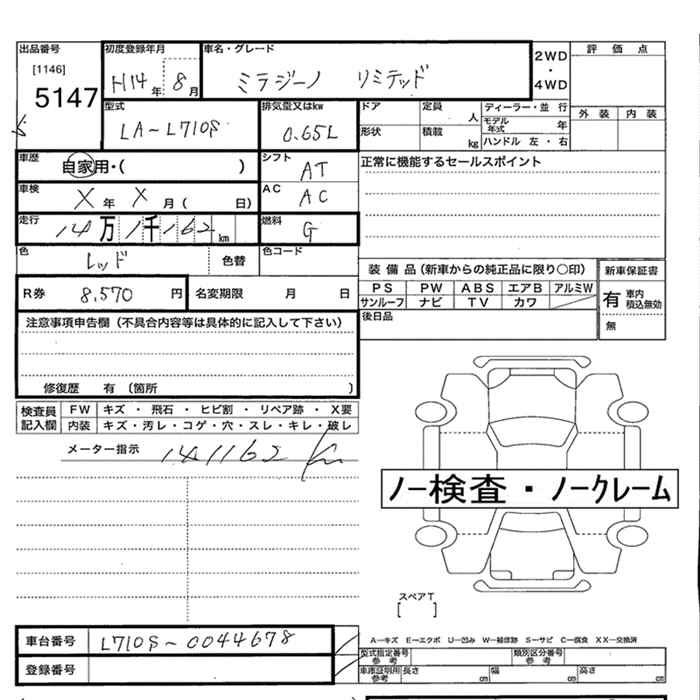 出品番号 初度登録年月 車名・グレード 2WD・4WD 評価点
[1146]
5147 H14年 8月 ミラジーノ リミテッド
外装 内装
型式 排気量又はkw ドア 定員 人 ディーラー・並行
LA-L710S 0.65L モデル年式 年
形状 積載 kg ハンドル 左・右
車歴 自家用・( ) シフト AT 正常に機能するセールスポイント
車検 X年 X月( 日) AC AC
走行 14万1千162km 燃料 G
色 レッド 色替 色コード
装備品(新車からの純正品に限り〇印) 新車保証書
R券 8,570円 名変期限 月 日
PS PW ABS エアB アルミW 有 車内積込無効
サンルーフ ナビ TV カワ 無
後日品
注意事項申告欄(不具合内容等は具体的に記入して下さい)
修復歴 有 (箇所 )
検査員記入欄 FW キズ・飛石・ヒビ割・リペア跡・X要
内装 キズ・汚レ・コゲ・穴・スレ・キレ・破レ
メーター指示 141162
ノー検査・ノークレーム
スペアT
[ ]
車台番号 L710S-0044678
A―キズ E―エクボ U―凹み W―補修跡 S―サビ C―腐食 XX―交換済
型式指定番号 参考 類別区分番号 参考
登録番号 車庫証明用参考 長さ cm 幅 cm 高さ cm